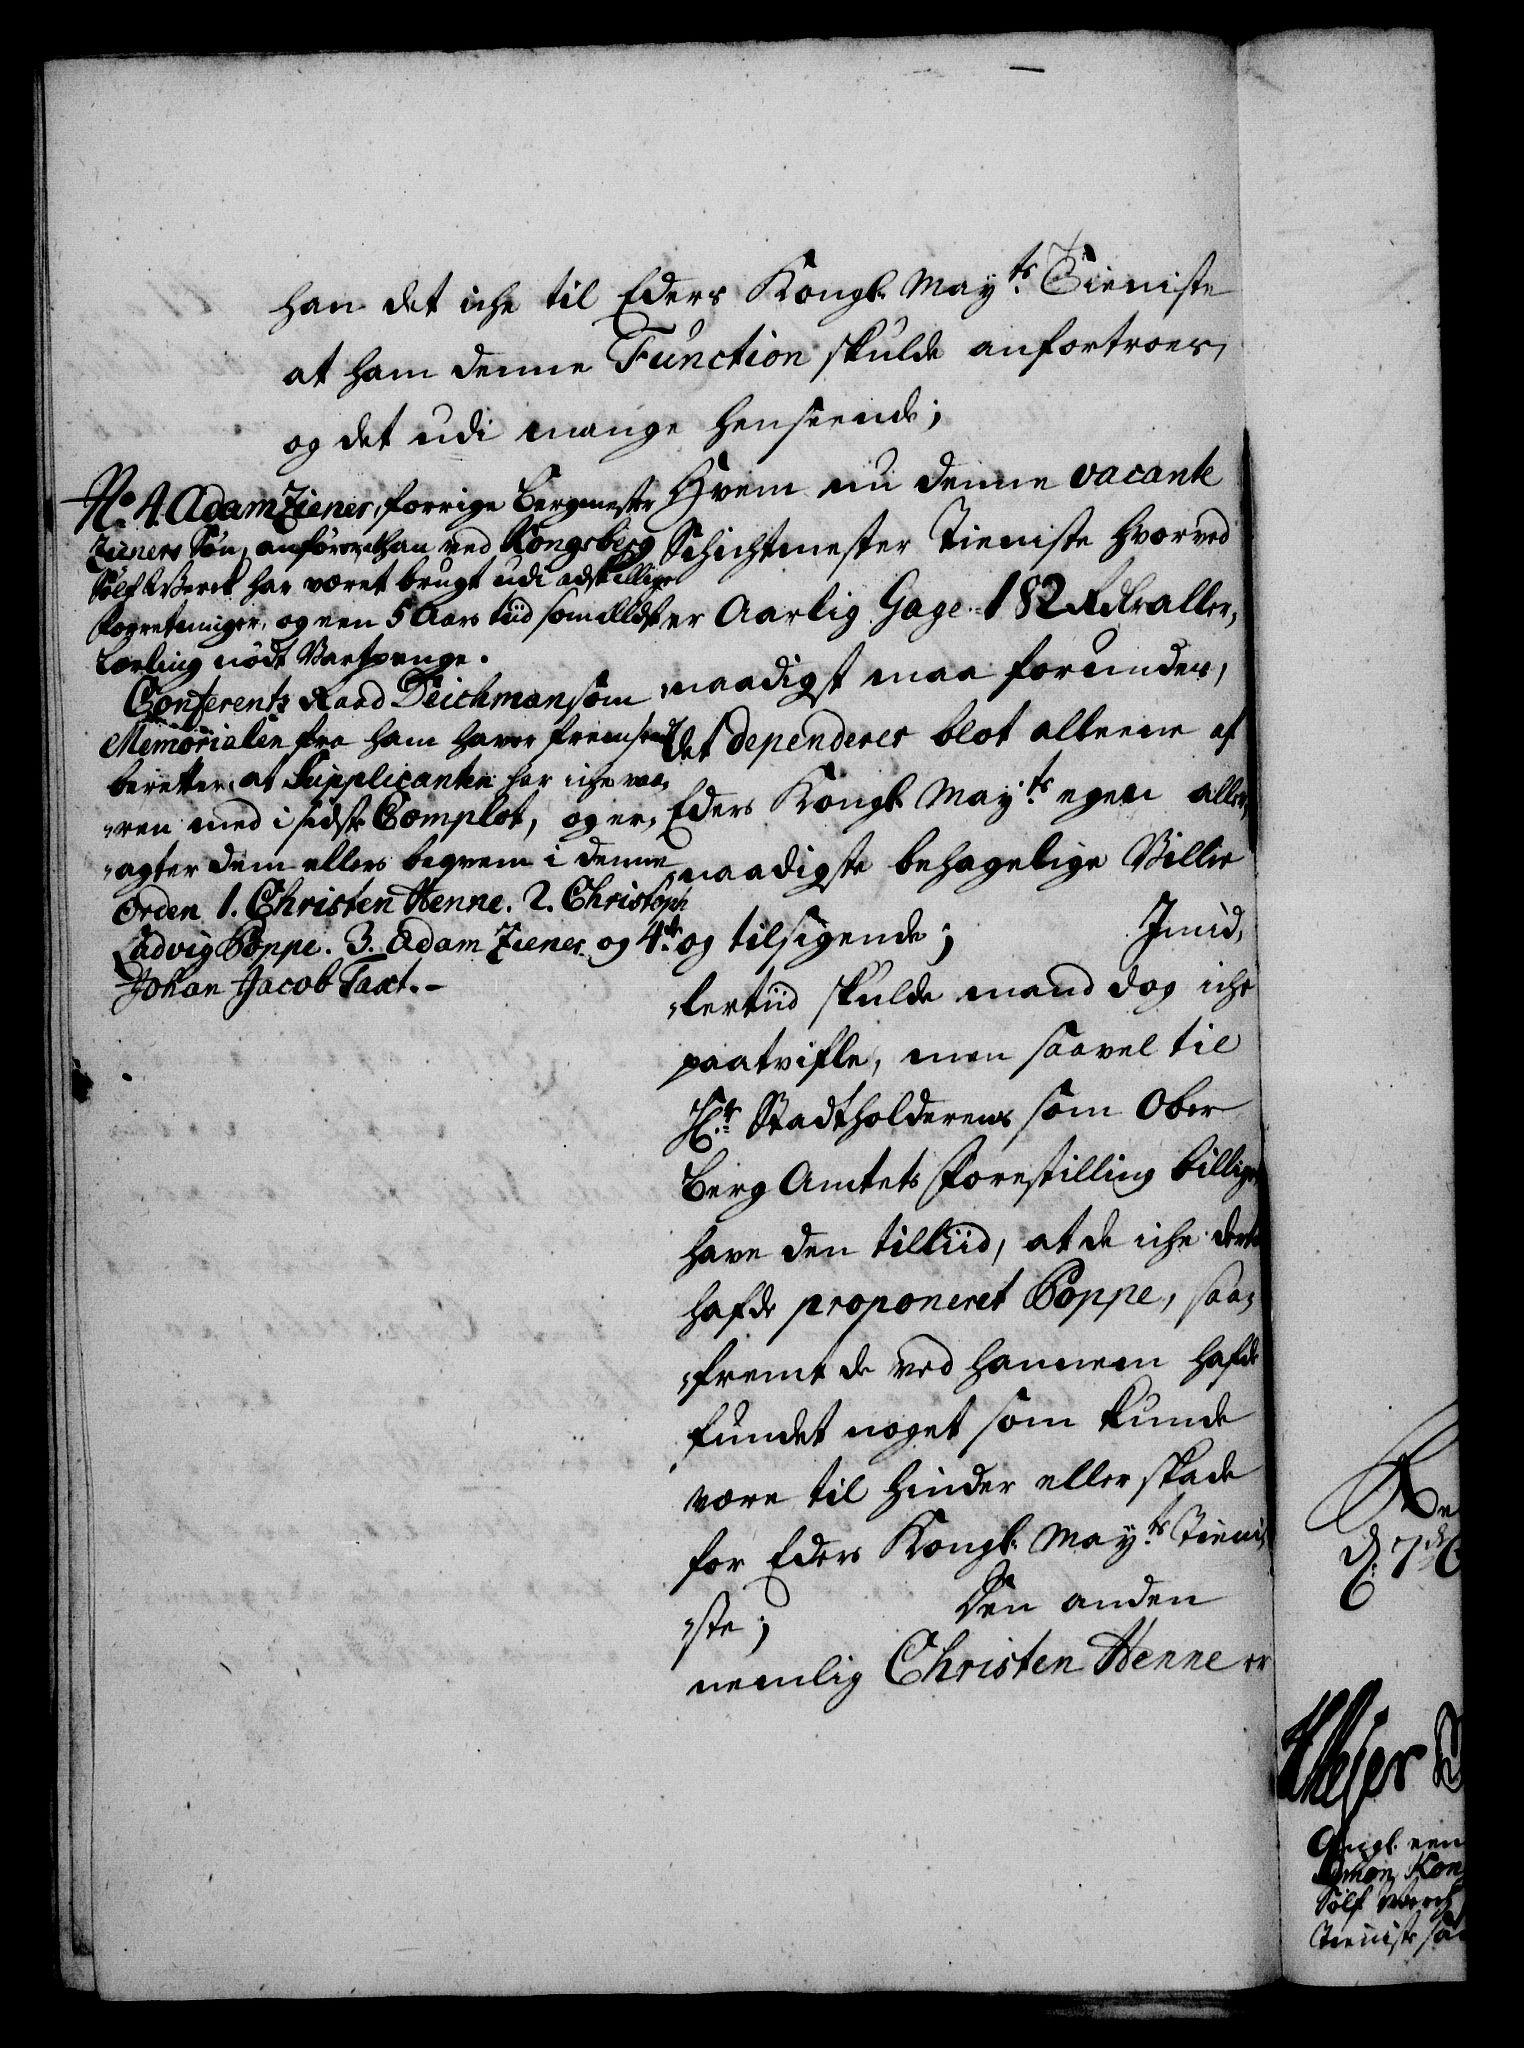 han det iche til Eders Kongl. May.ts Tieniste
at ham denne Function skulde anfortroes,
og det udi mange henseende;
No. 4. Adam Ziener, forrige Bergmester
Zieners Søn, anfører at han ved Kongsberg
Sølf Werck har været brugt udi adskillige
forretninger, og een 5 Aars tiid som eldste
Lærling nødt Wartpenge.
Conferentz Raad Deichman som
Memorialen fra ham haver fremsendt
beretter, at Supplicanten har iche væ,
,,ren med i sidste Complot, og er,
,,agter dem ellers beqvem i denne
Orden 1. Christen Henne. 2. Christoph
Ludvig Poppe. 3. Adam Ziener og 4de
Johan Jacob Taxt.-
Hvem nu denne vacante
Schichtmester Tieniste hvorved
er Aarlig Gage 182 Rdlr aller,
,,naadigst maa forundes,
det dependerer blot alleene af
Eders Kongl. May.ts egen aller,
,,naadigste behagelige Villie
og tilsigende; Imid,
,,lertiid skulde mand dog iche
paatvifle, men saavel til
Hr. Stadtholderens som Ober
Berg Amtets Forestilling billigen
have den tilliid, at de iche dertil
hafde proponeret Poppe, saa,
,,fremt de ved hannem hafde
fundet noget som kunde
være til hinder eller skade
for Eders Kongl. May.ts Tieni,
,,ste; Den anden
nemlig Christen Henne er
Sølf Werch
Tieniste